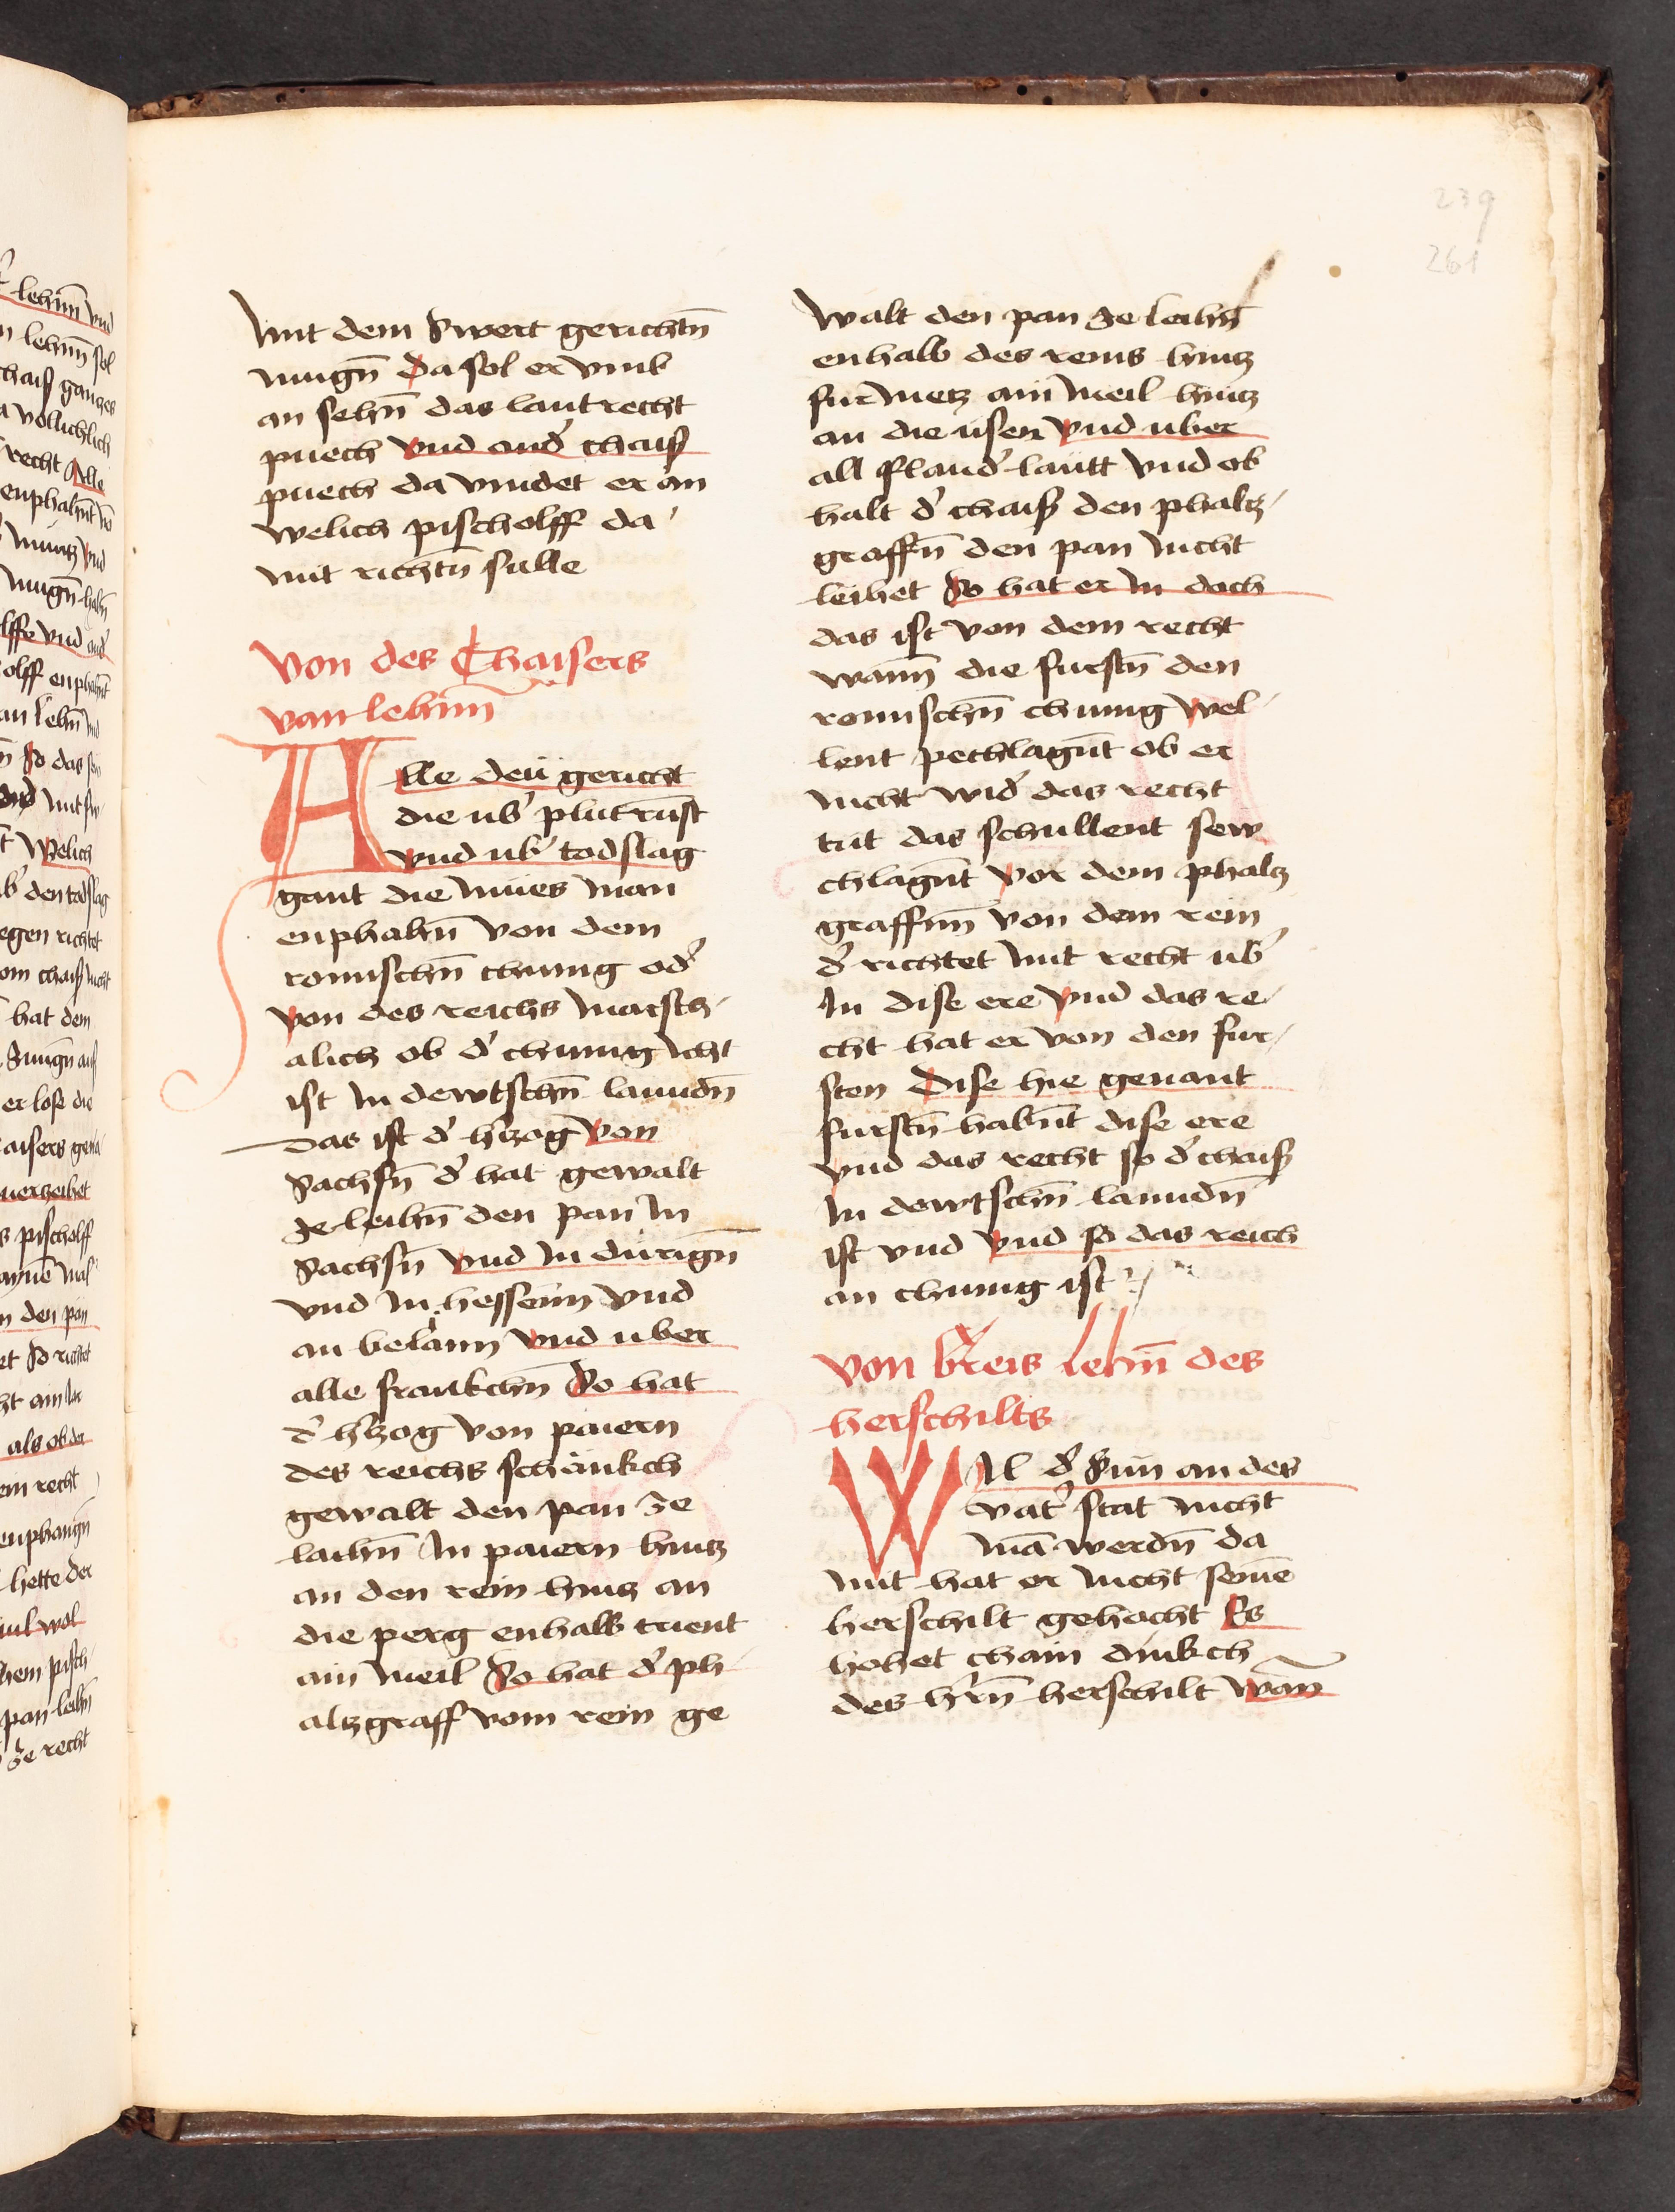 239
261
mit dem swert gerichtn̄
mugn̄ da sol er vmb
an sehn̄ das lantrecht
puech vnd and' chaiß
puech da vindet er an
welich pischolff da
mit richtn̄ sulle
Von des Chaisers
van lehnn̄
Alle deu gericht
die ub' plutrunst
vnd ub' todslag
gant die mues man
enphahn̄ von dem
romischn̄ chunig od'
von des reichs marsch
alich ob d' chunig icht
ist in dewtschn̄ lanndn̄
Das ist d' h'tzog von
Sachsn̄ d' hat gewalt
ze leihn̄ den pan in
Sachsn̄ vnd in durign̄
vnd in hessenn vnd
an belann vnd uber
alle frankchn̄ So hat
d' h'tzog von paiern
des reichs schänkch
gewalt den pan ze
laihn̄ in paiern hintz
an den rein hintz an
die perg enhalb trient
ain meil So hat d' ph
altzgraff vom rein ge
walt den pan ze leihn̄
enhalb des reins hintz
fur Metz ain meil hintz
an die usen vnd uber
all fland' lautt vnd ob
halt d' chaiß den phaltz
graffn̄ den pan nicht
leihet So hat er in doch
das ist von dem recht
wann̄ die furstn̄ den
romischn̄ chunig wel
lent pechlagn̄t ob er
nicht wid' das recht
tut das schullent sew
chlagn̄t vor dem phaltz
graffnn̄ von dem rein
d' richtet mit recht ub'
in dise ere vnd das re
cht hat er von den fur
sten Dise hie genant
furstn̄ habn̄t dise ere
vnd das recht so d' chaiß
in dewtschn̄ lanndn̄
ist vnd vnd so das reich
an chunig ist
von kreis lehn̄ des
herschilts
Wil d' Sun an des
vat' stat nicht
mā werdn̄ da
mit hat er nicht seinē
herschilt gehocht Es
hohet chain dinkch
des h'rn̄ herschilt wan̄